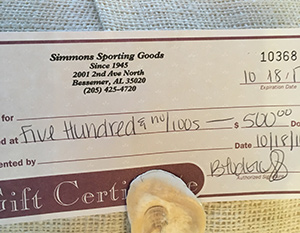 Simmons Sporting Goods
Since 1945
2001 2nd Ave North
Bessemer, AL 35020
(205) 425-4720
10368
10 18
Expiration Date
for
ed at Five Hundred & no/100s $ 500.00 Do
Date 10/18/1
ented by
Authorized Signature
Gift Certificate